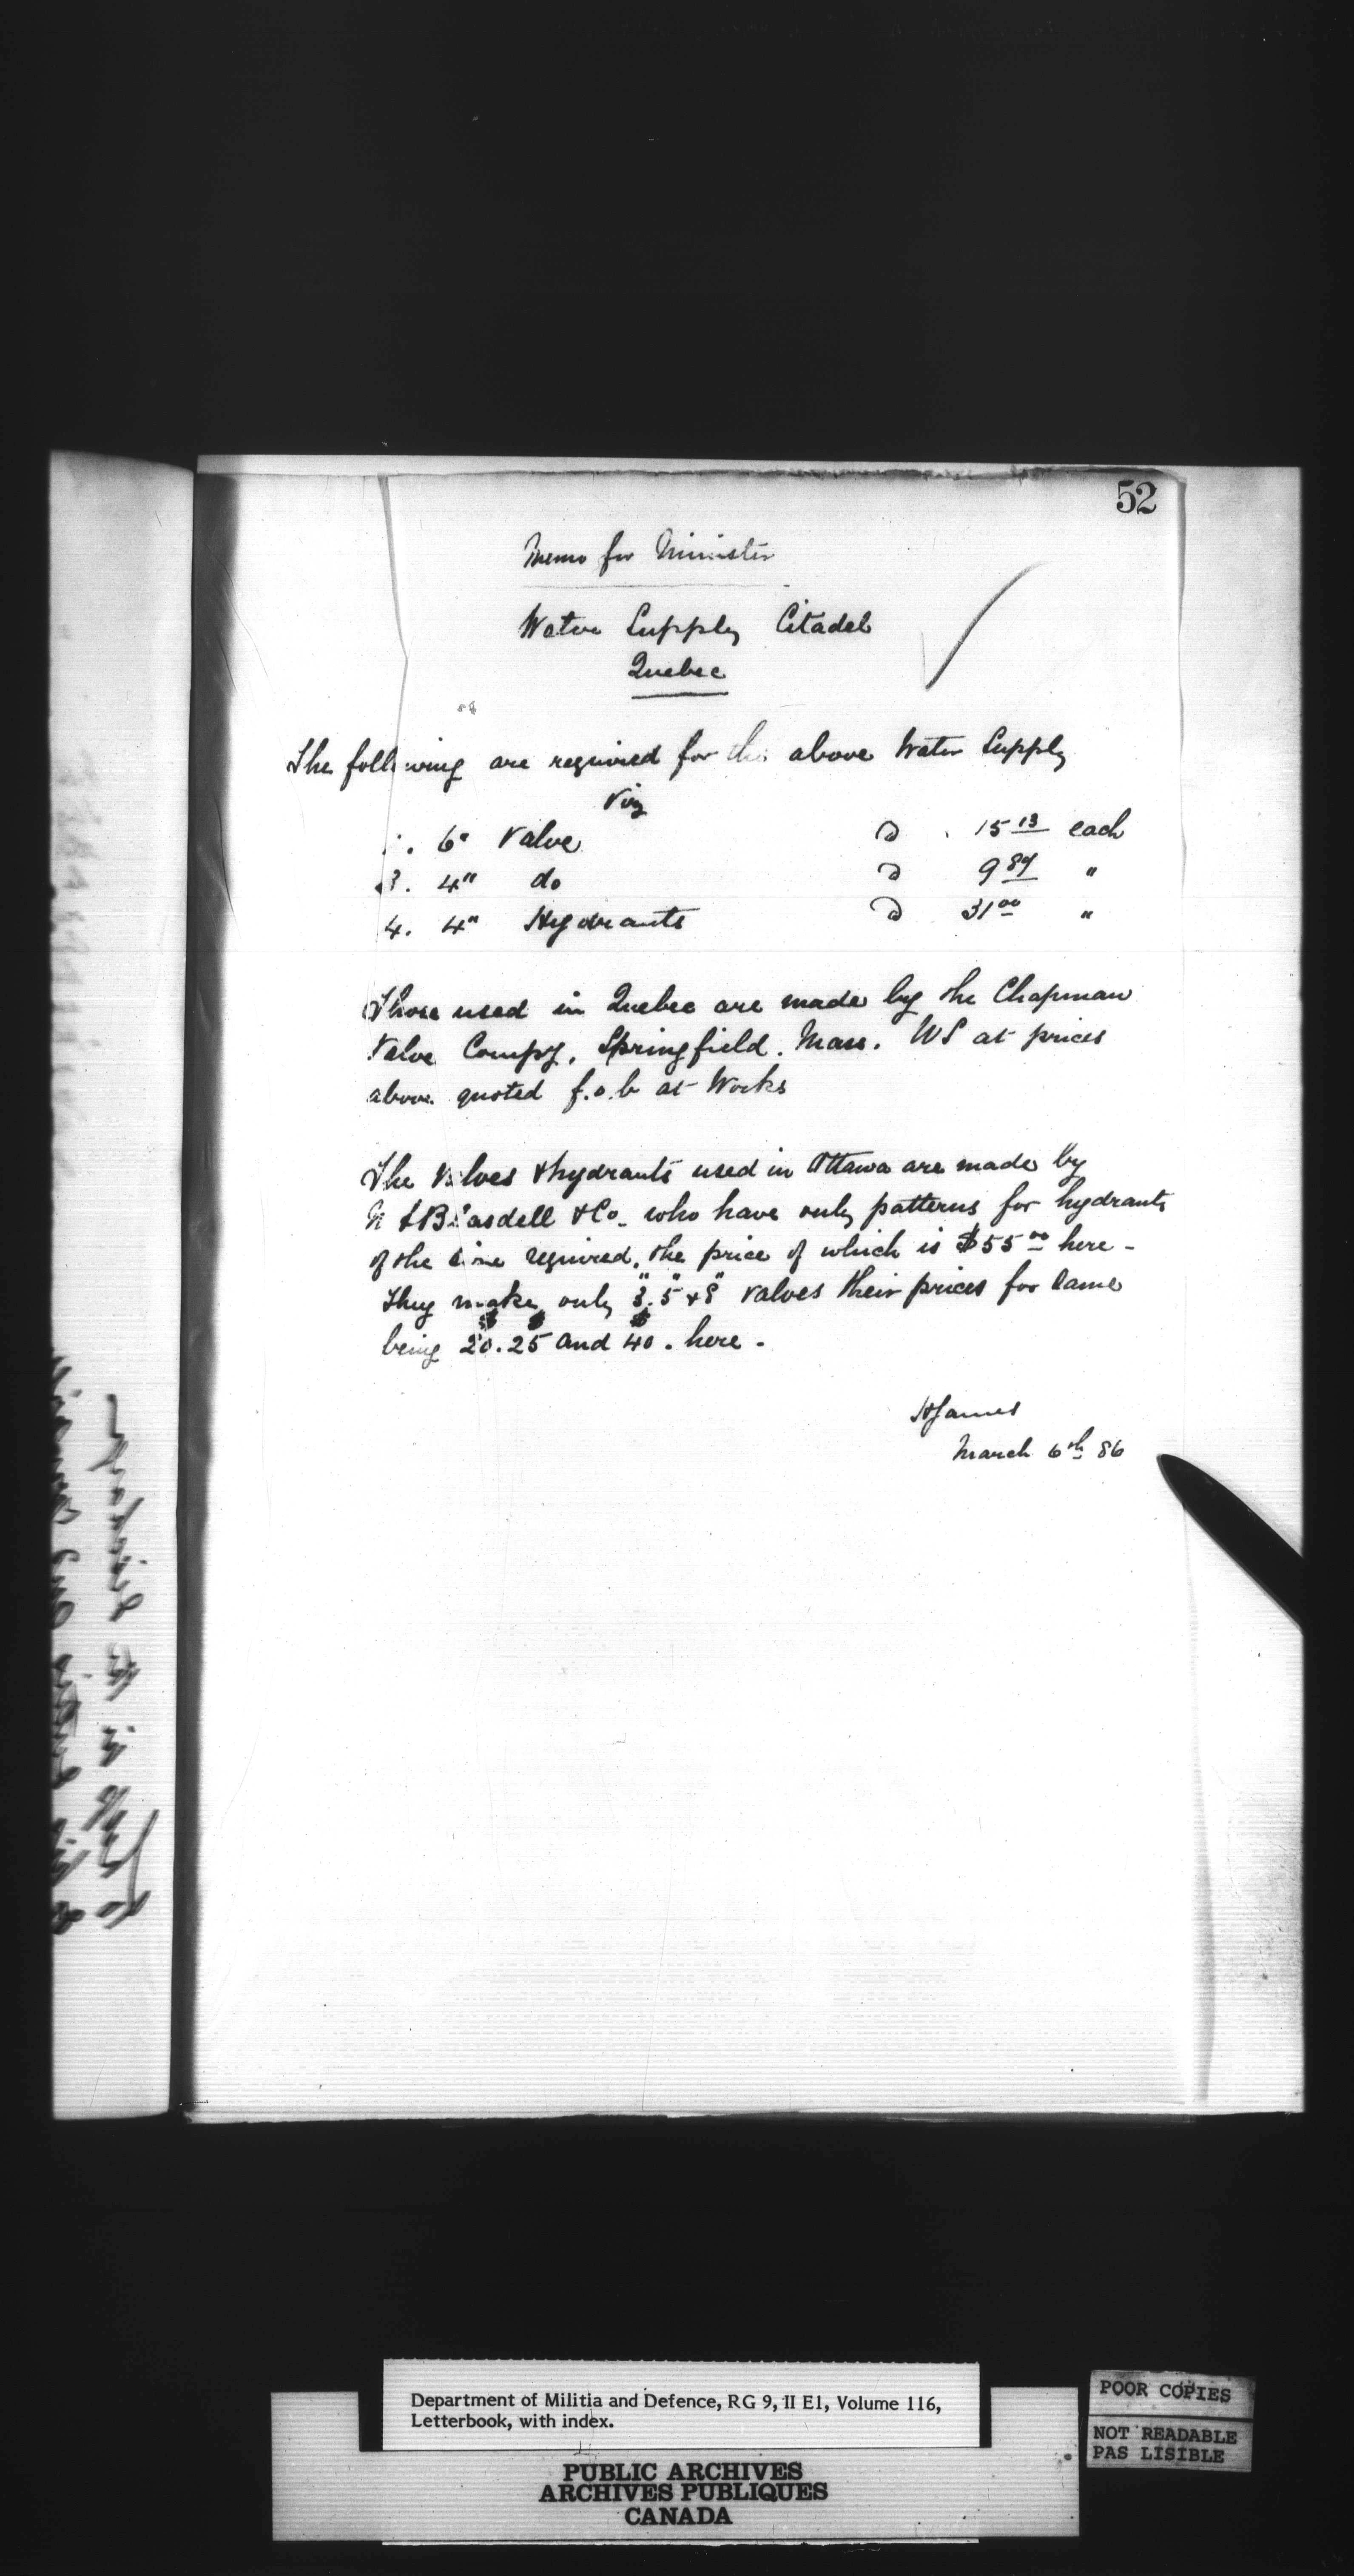 52
Memo for Minister
Water Supply Citadel
Quebec
The following are required for the above Water Supply
Viz
6" Valve @ 15 13 each
3. 4" do @ 9 84 "
4. 4" Hydrants @ 31 00 "
Those used in Quebec are made by the Chapman
Valve Compy, Springfield. Mass. US at prices
above quoted f.o.b at Works
The Valves & hydrants used in Ottawa are made by
Blasdell & Co. who have only patterns for hydrants
of the size required, the price of which is $55 00 here -
They make only 3", 5" & 8" valves their prices for same
being $20. $25 and $40. here -
H James
March 6th 86
Department of Militia and Defence, RG 9, II E1, Volume 116,
Letterbook, with index.
PUBLIC ARCHIVES
ARCHIVES PUBLIQUES
CANADA
POOR COPIES
NOT READABLE
PAS LISIBLE